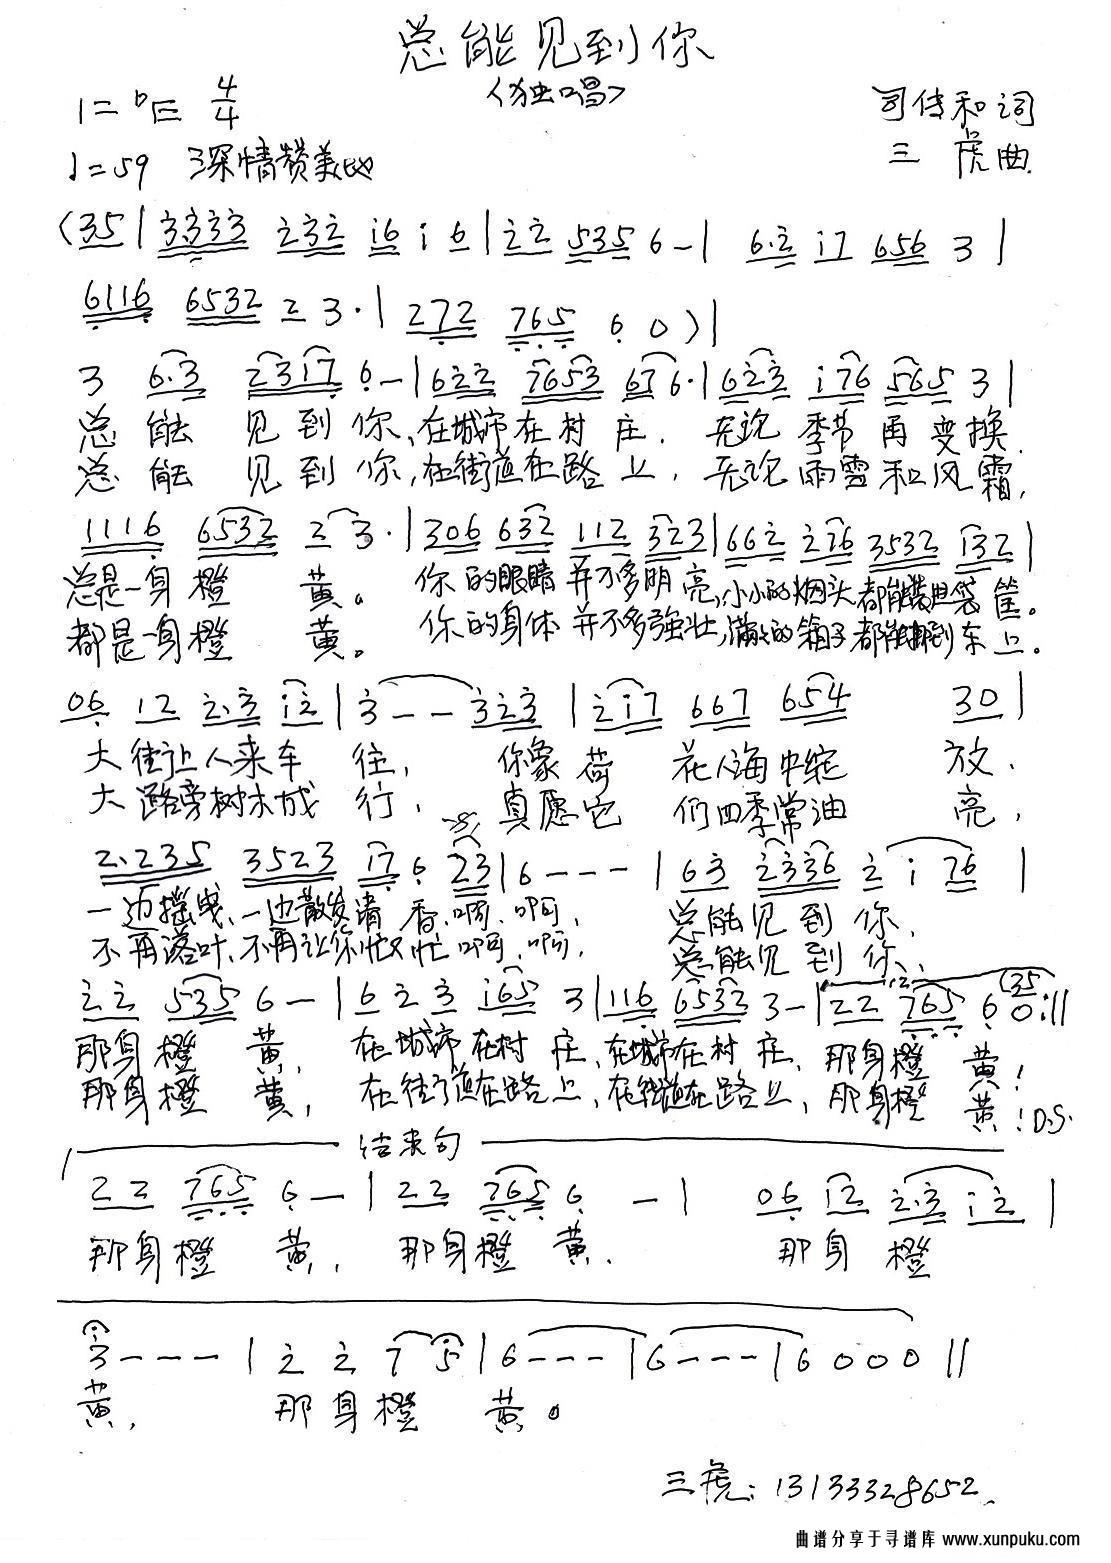 总能见到你
<独唱>
1=bE 4/4
司传和词
♩=59 深情赞美地
三虎曲
(35|3333 232 i6 i 6|22 535 6-|6·2 i7 656 3|
6116 6532 2 3·|272 765 6 0)|
3 6·3 23i7 6-|622 7653 676·|623 i76 565 3|
总能见到你,在城市在村庄.无论季节再变换.
总能见到你,在街道在路上,无论雨雪和风霜,
1116 6532 2 3·|306 632 112 323|662 2i6 3532 i32|
总是一身橙黄。你的眼睛并不多明亮,小小的烟头都能装进袋筐。
都是一身橙黄。你的身体并不多强壮,满大的箱子都能挪到车上。
06 12 2·3 i2|3-- 323|2i7 667 654 30|
大街让人来车往,你象荷花人海中绽放.
大路旁树木成行.真愿它们四季常油亮,
2·235 3523 i7 6 23|6---|63 2336 2 i 76|
一边摇曳、一边散发清香.啊.啊,总能见到你,
不再落叶,不再让你忙又忙啊.啊,总能见到你、
22 535 6-|6 2 3 i65 3|116 6532 3-|22 765 6 0:||
1.2. (35
那身橙黄,在城市在村庄、在城市在村庄、那身橙黄!
那身橙黄,在街道在路上,在街道在路上,那身橙黄!D.S.
结束句
22 765 6-|22 765 6 -|06 i2 2·3 i2|
那身橙黄,那身橙黄.那身橙
3---|2 2 7 5|6---|6---|6000||
黄,那身橙黄。
三虎:13133328652.
曲谱分享于寻谱库 www.xunpuku.com